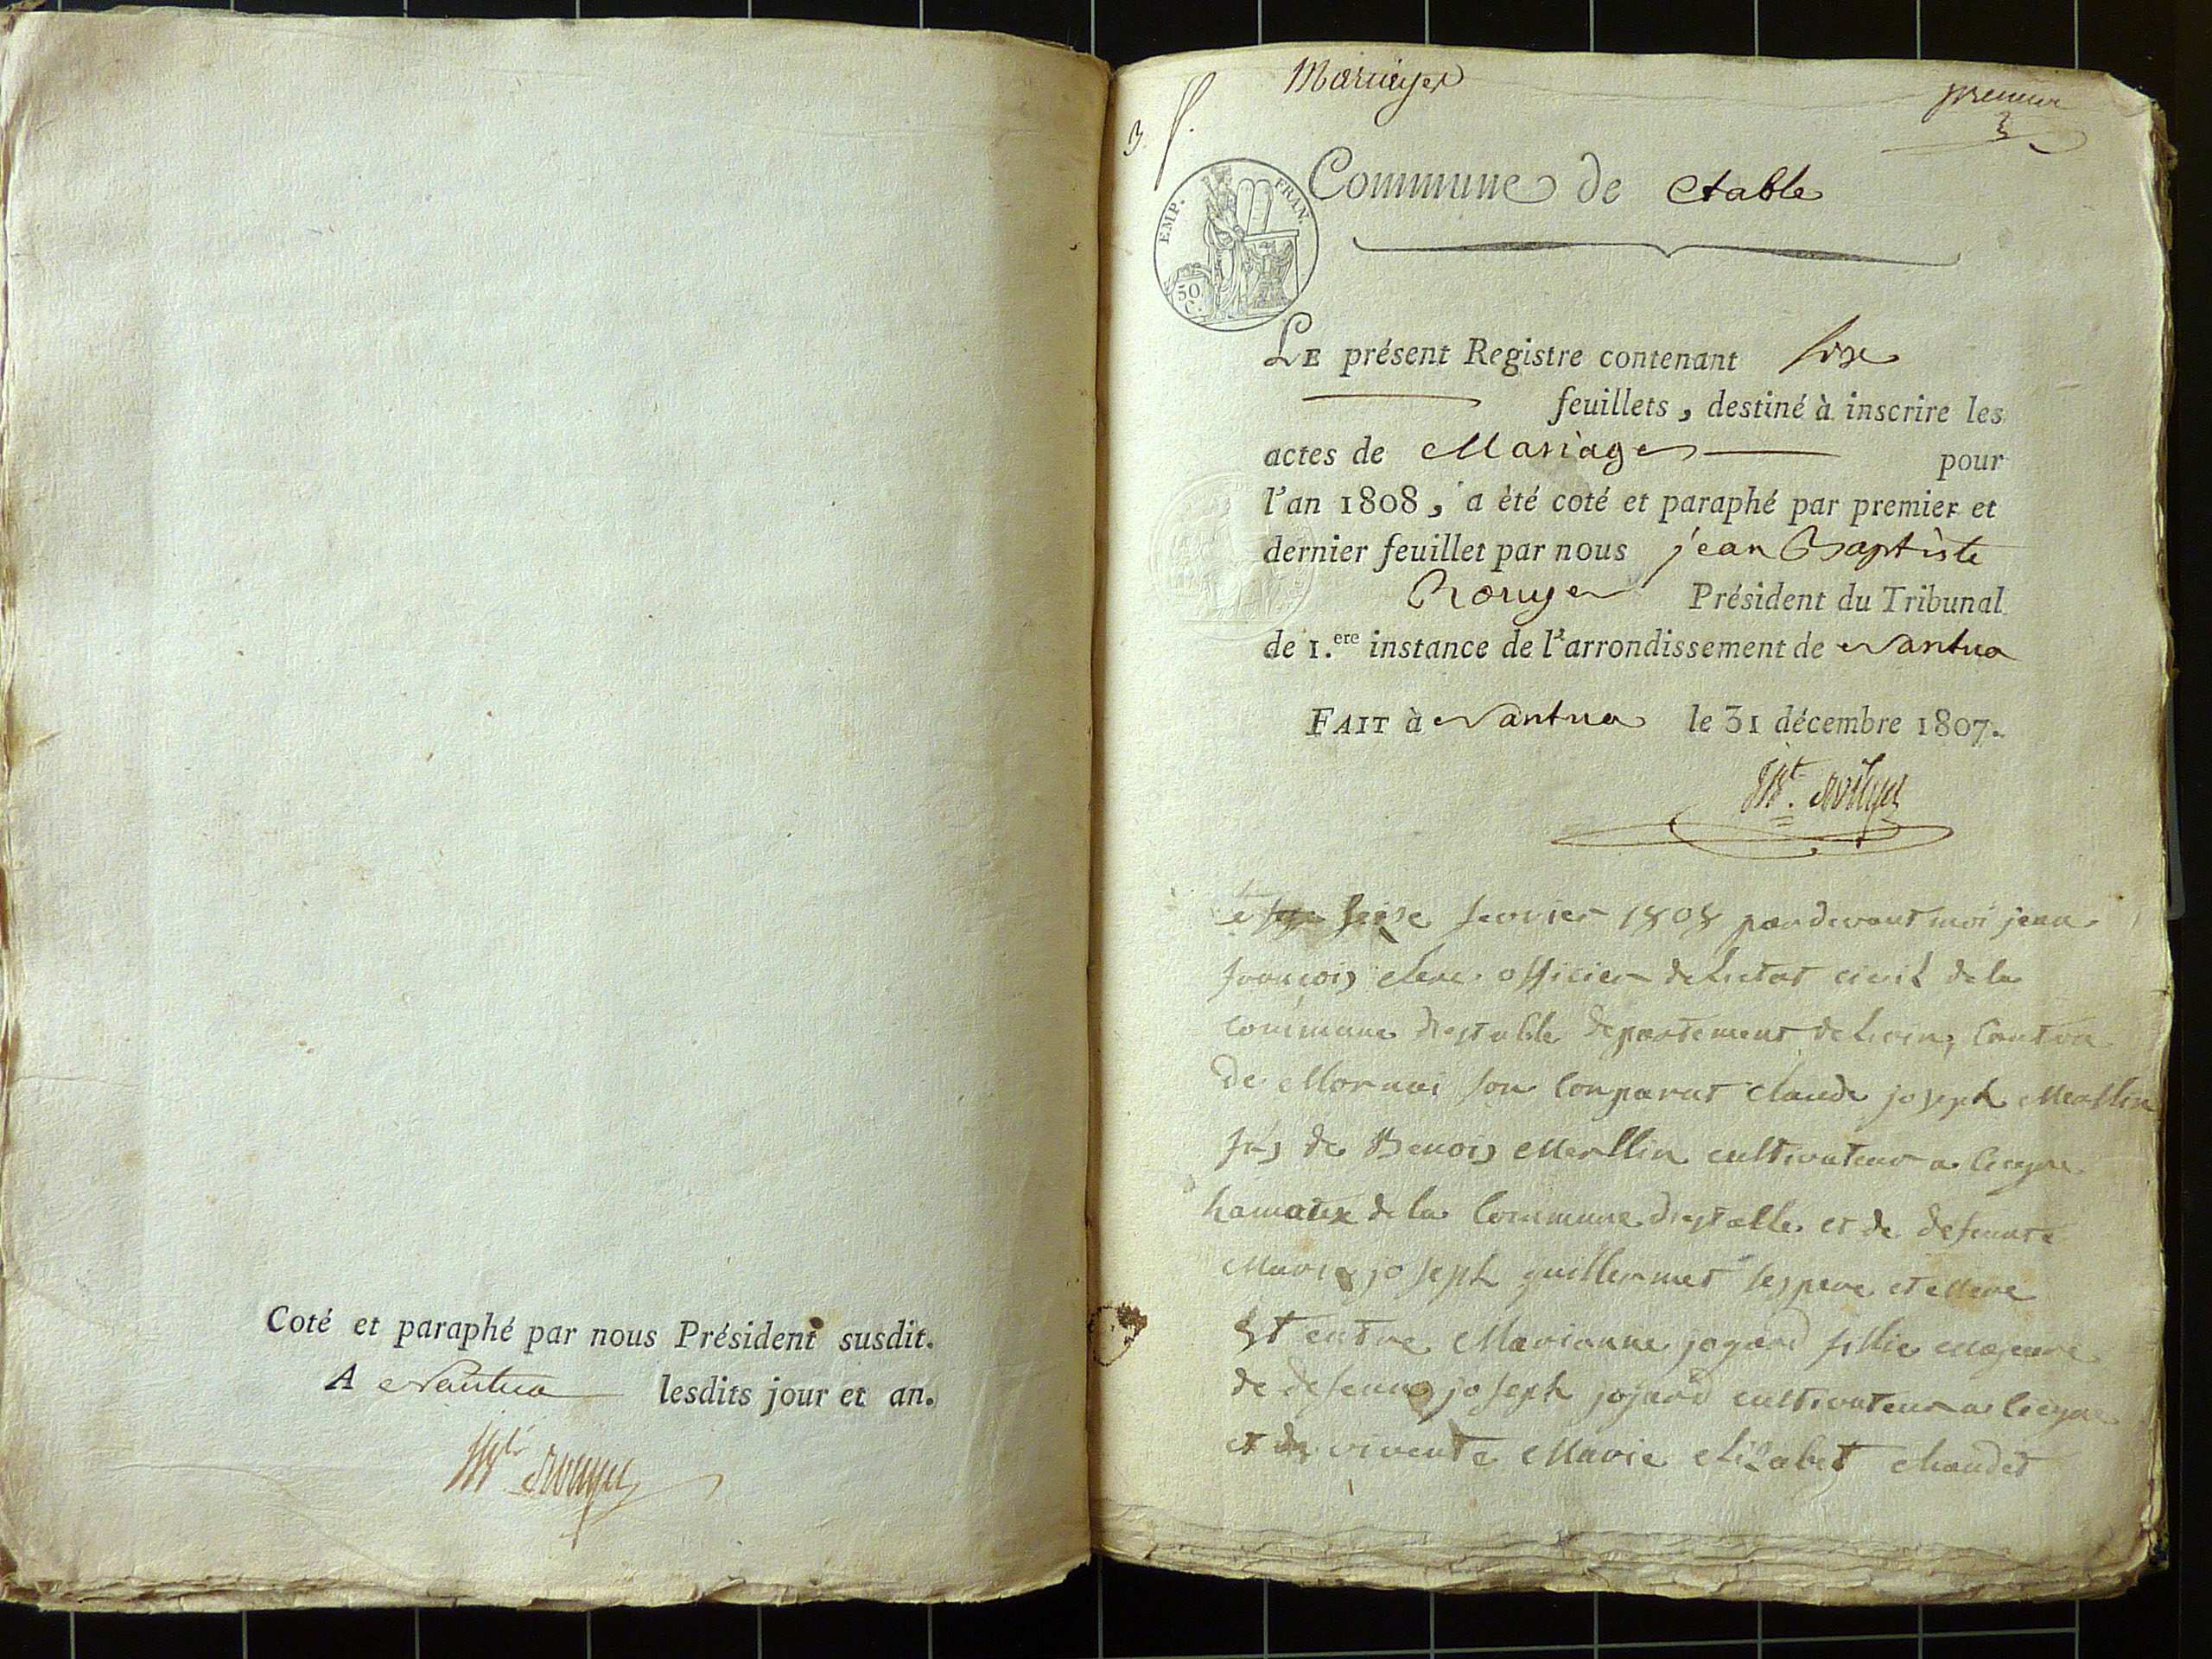 Coté et paraphé par nous Président susdit.
A Nantua lesdits jour et an.
JBte Rouyer
Mariages
premier
3
Commune de Etable
EMP. FRAN.
50 C.
LE présent Registre contenant six
feuillets, destiné à inscrire les
actes de Mariages pour
l'an 1808, a èté coté et paraphé par premier et
dernier feuillet par nous jean Baptiste
Rouyer Président du Tribunal
de 1.ere instance de l'arrondissement de Nantua
FAIT à Nantua le 31 décembre 1807.
JBte Rouyer
Le seise fevrier 1808 pardevant moi jean
françois clerc officier de Letat civil de la
commune destable departement de Loin, Canton
de Mornai son Conparut Claude joseph Merllin
fis de Benois Merllin cultivateur a
hamaux de la Commune destable et de defunte
Marie joseph guillermet ses pere et Mere
Et entre Marianne jogard fillie Majeure
de defeunt joseph jojard cultivateur a
et de vivente Marie Elizabet chaudet